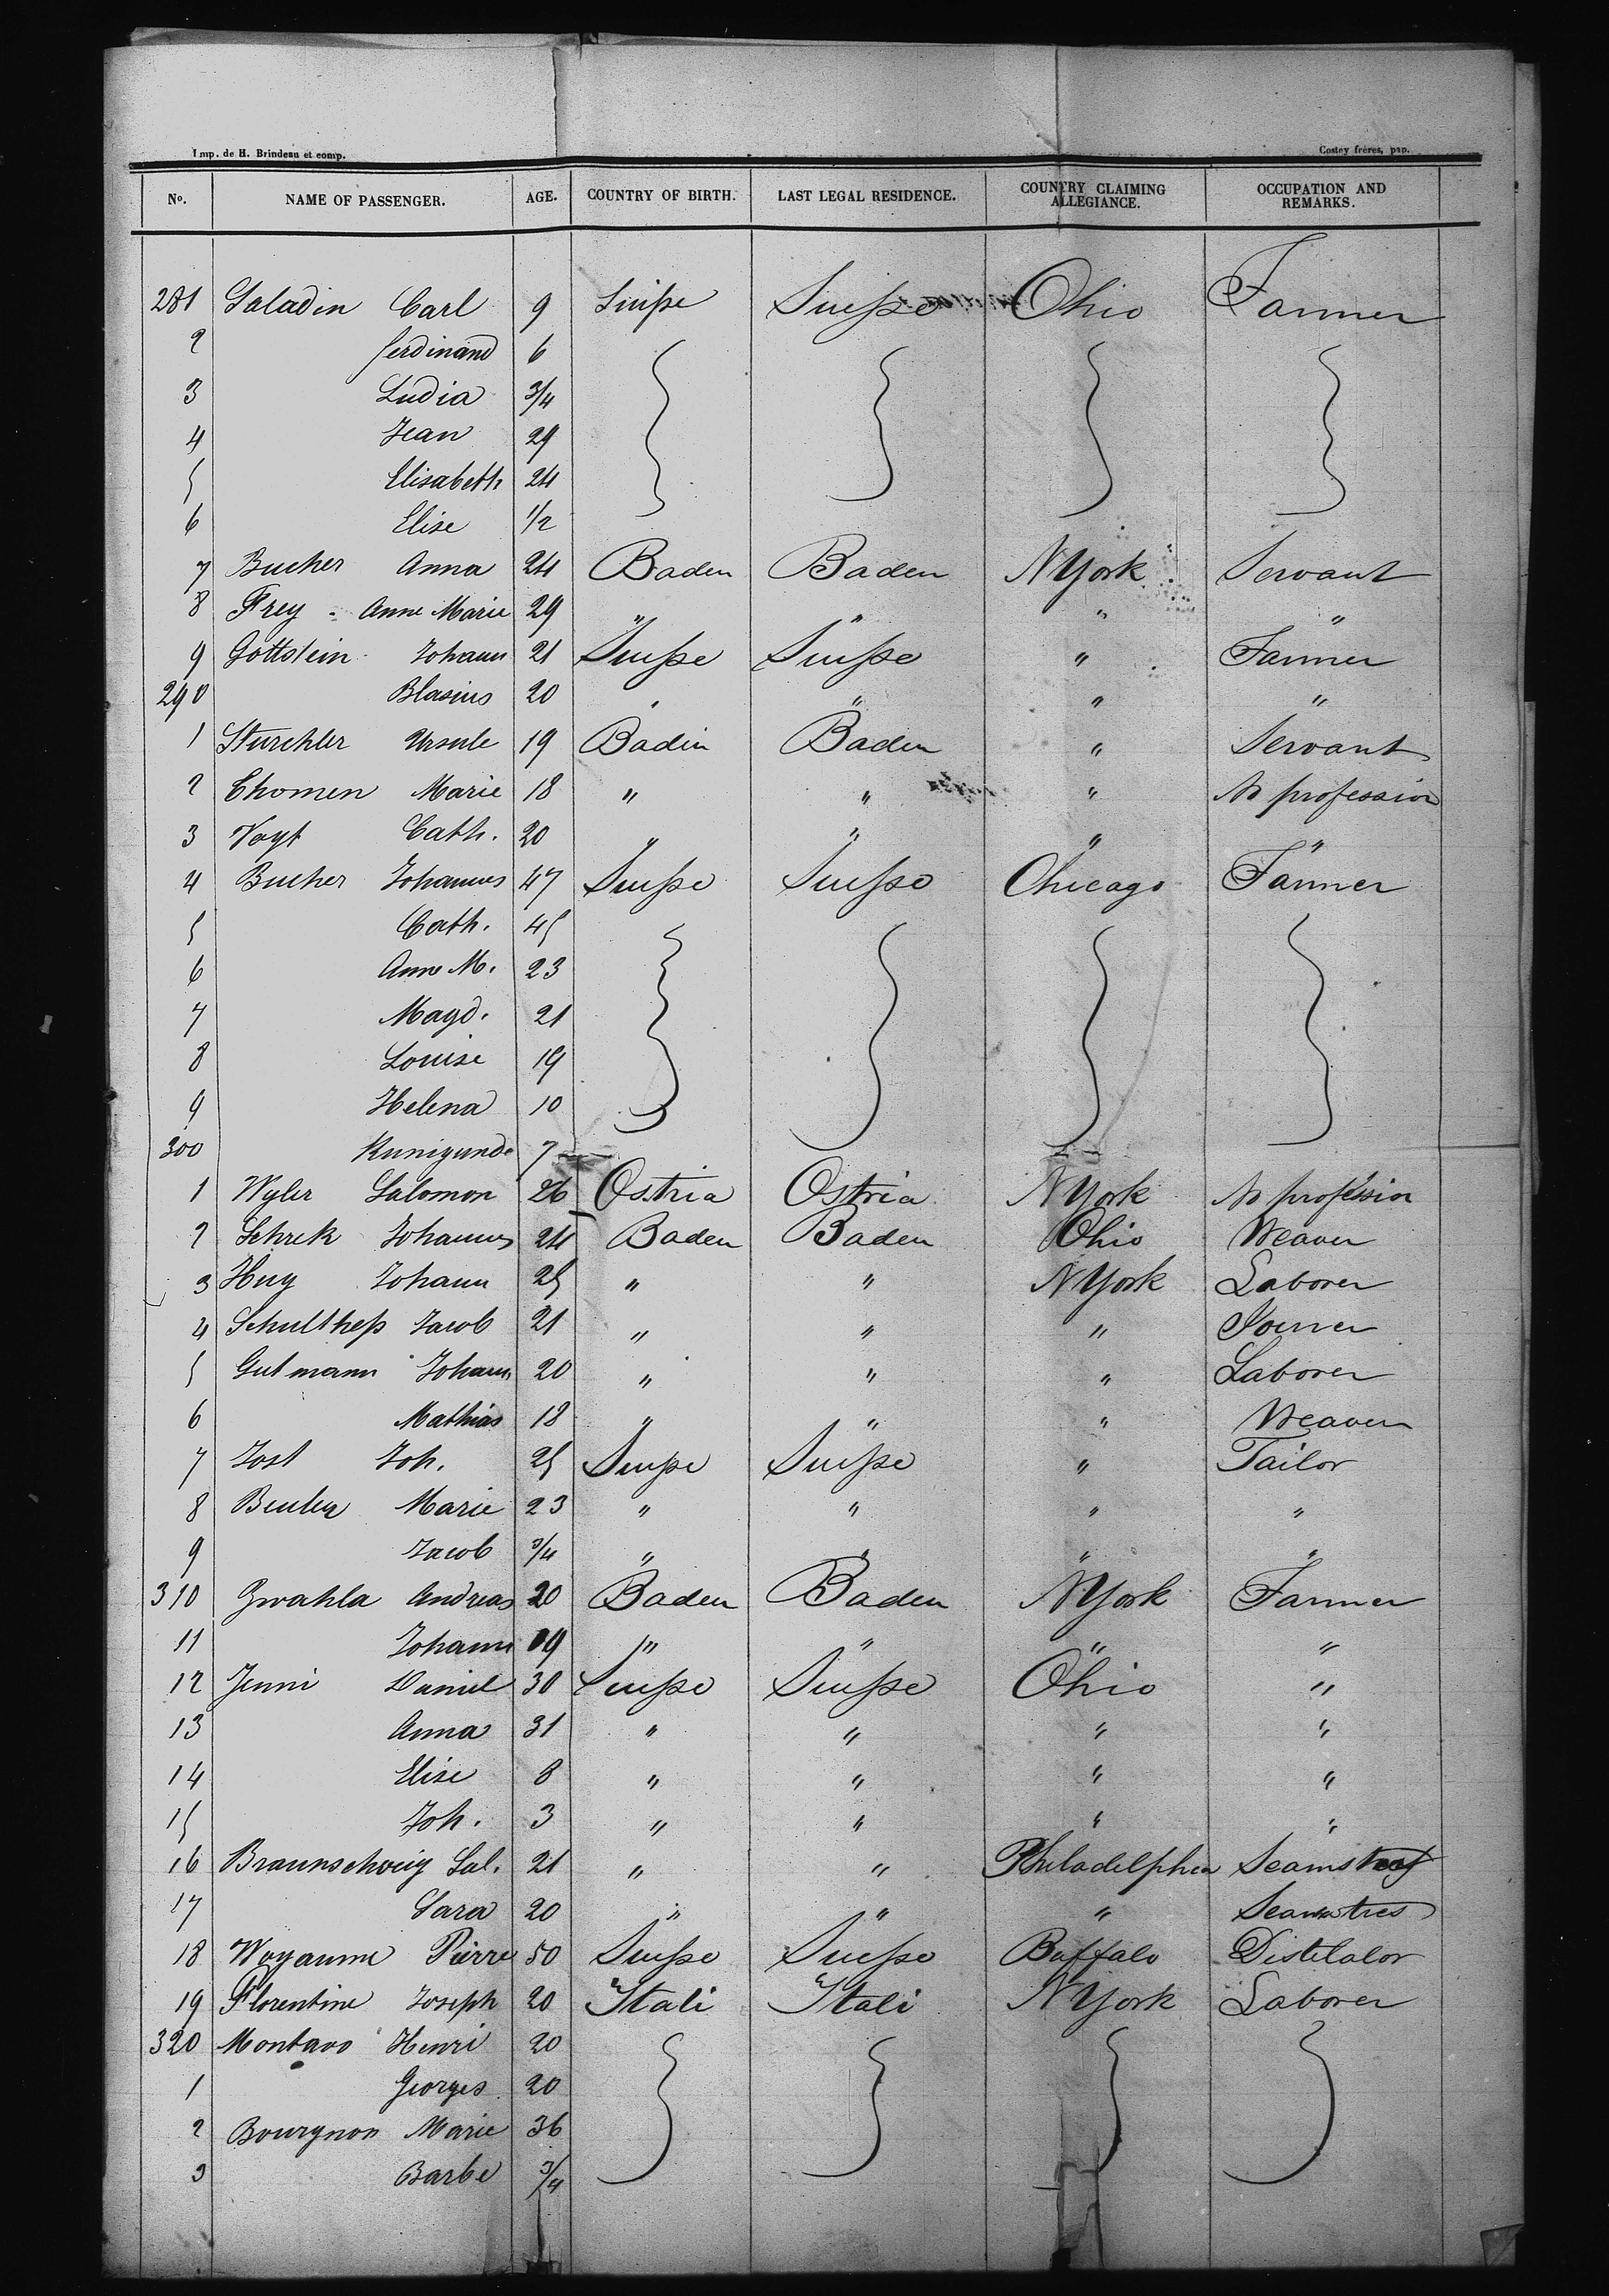 Imp. de H. Brindeau et comp. Costey frères, pap.
No. NAME OF PASSENGER. AGE. COUNTRY OF BIRTH. LAST LEGAL RESIDENCE. COUNTRY CLAIMING ALLEGIANCE. OCCUPATION AND REMARKS.
281 Saladin Carl 9 Suisse Suisse Ohio Farmer
2 ferdinand 6
3 Ludia 3/4
4 Jean 29
5 Elisabeth 24
6 Elise 1/2
7 Bucher Anna 24 Baden Baden NYork Servant
8 Frey Anne Marie 29 " " " "
9 Gottstein Johann 21 Suisse Suisse " Farmer
290 Blasius 20 " " " "
1 Sturchler Ursule 19 Baden Baden " Servant
2 Thomen Marie 18 " " " No profession
3 Vogt Cath. 20 " " " "
4 Bucher Johannes 47 Suisse Suisse Chicago Farmer
5 Cath. 45
6 Anne M. 23
7 Magd. 21
8 Louise 19
9 Helena 10
300 Kunigunde 7
1 Wyler Salomon 26 Ostria Ostria NYork No profession
2 Schrek Johannes 24 Baden Baden Ohio Weaver
3 Huy Johann 25 " " NYork Laborer
4 Schulthess Jacob 21 " " " Joerner
5 Gutmann Johann 20 " " " Laborer
6 Mathias 18 " " " Weaver
7 Jost Joh. 25 Suisse Suisse " Tailor
8 Beuler Marie 23 " " " "
9 Jacob 3/4 " " " "
310 Zwahla Andreas 20 Baden Baden NYork Farmer
11 Johann 19 " " " "
12 Jenni Daniel 30 Suisse Suisse Ohio "
13 Anna 31 " " " "
14 Elise 8 " " " "
15 Joh. 3 " " " "
16 Braunschweig Sal. 21 " " Philadelphia
17 Sara 20 " " " Seamstres
18 Woyaume Pierre 50 Suisse Suisse Buffalo Distilalor
19 Florentine Joseph 20 Itali Itali NYork Laborer
320 Montavo Henri 20
1 Georges 20
2 Bourgnon Marie 36
3 Barbe 3/4